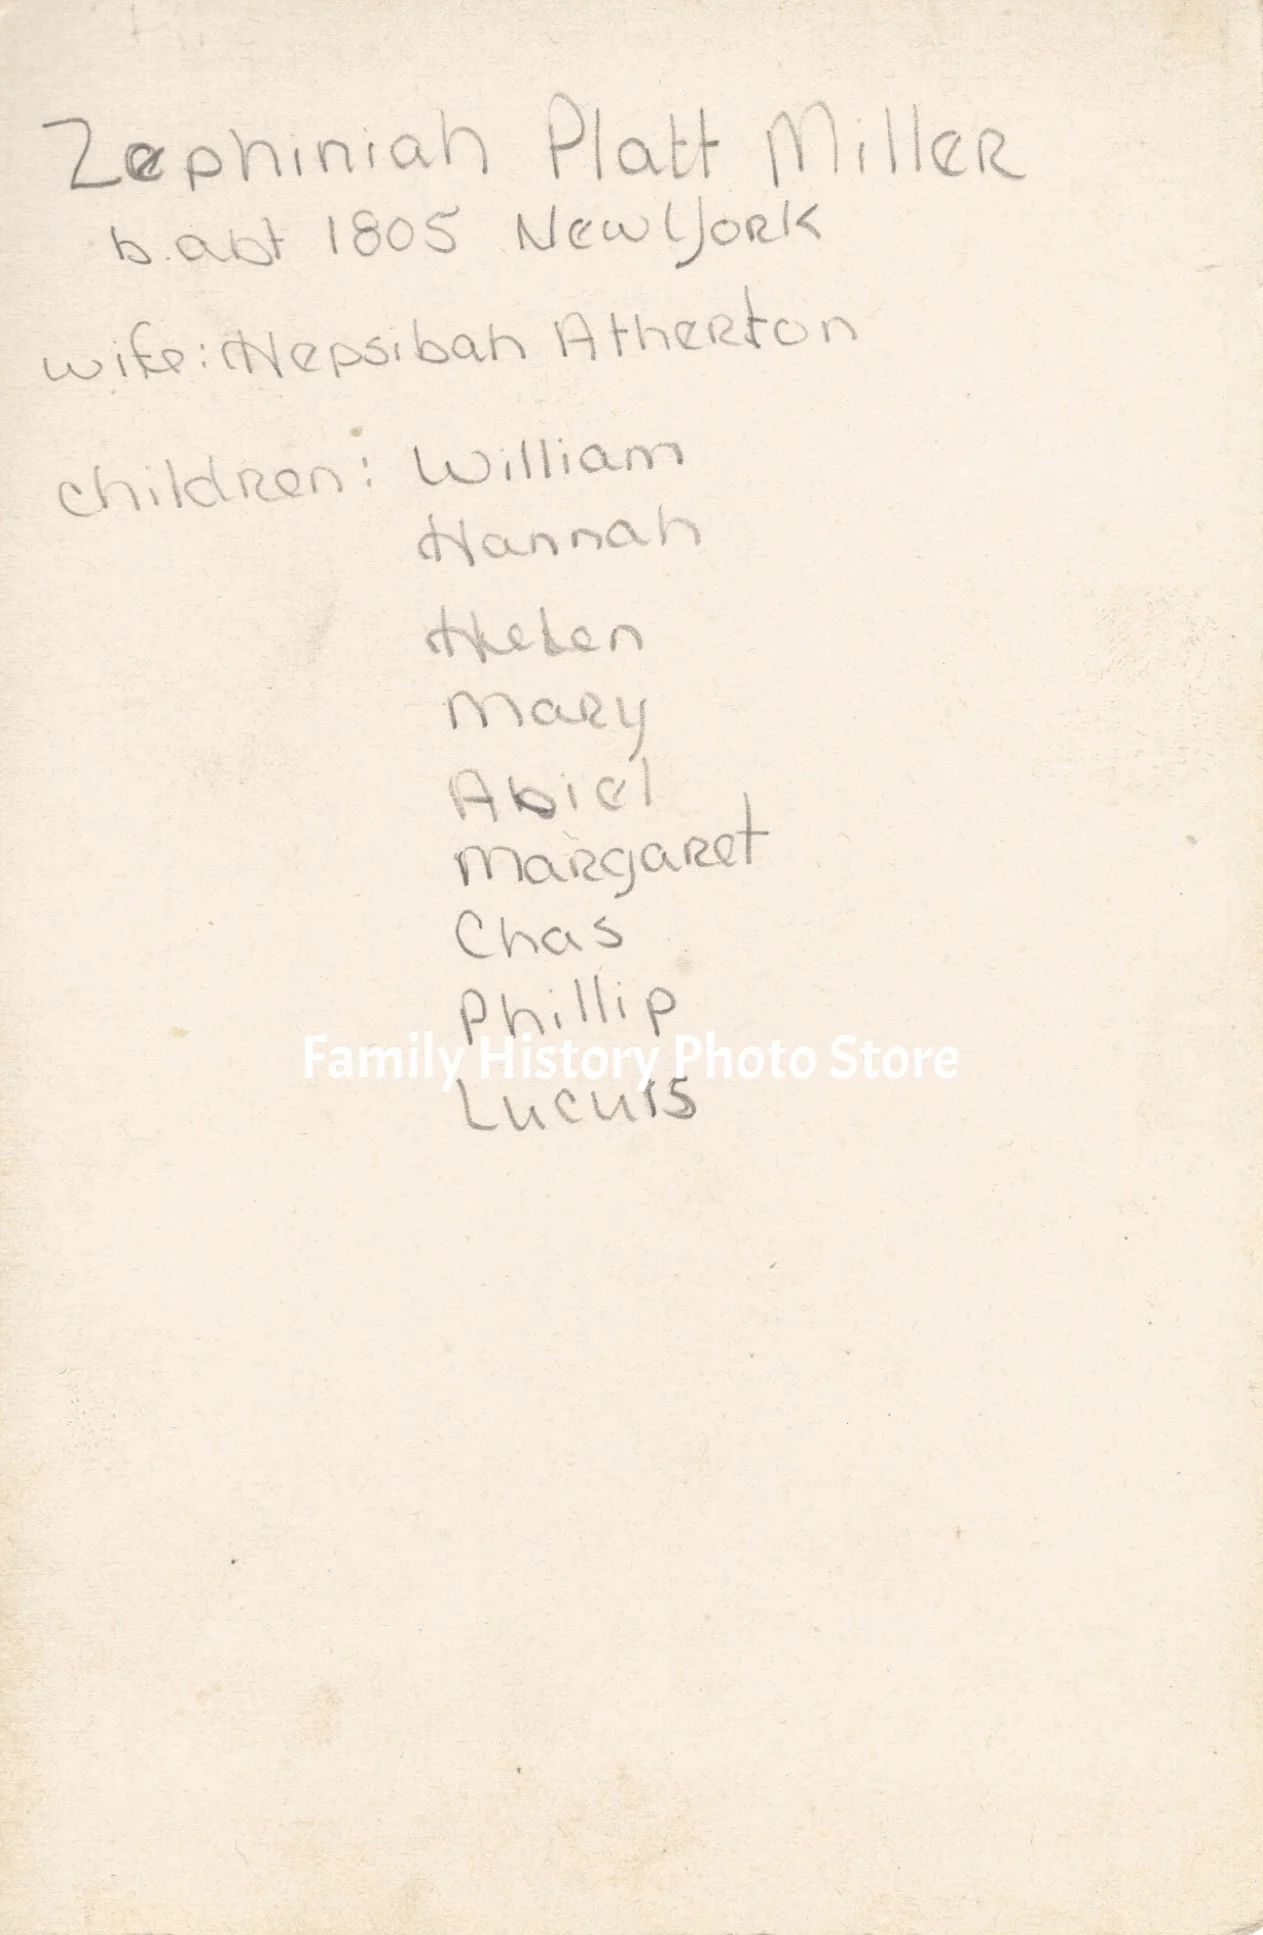 Zephiniah Platt Miller
b. abt 1805 New York
wife: Hepsibah Atherton
children: William
Hannah
Helen
Mary
Abiel
Margaret
Chas
Phillip
Family History Photo Store